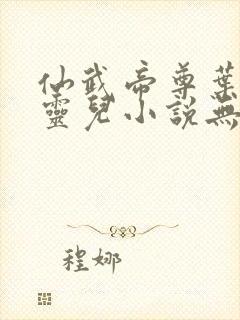 仙武帝尊葉
靈兒小說無
程娜